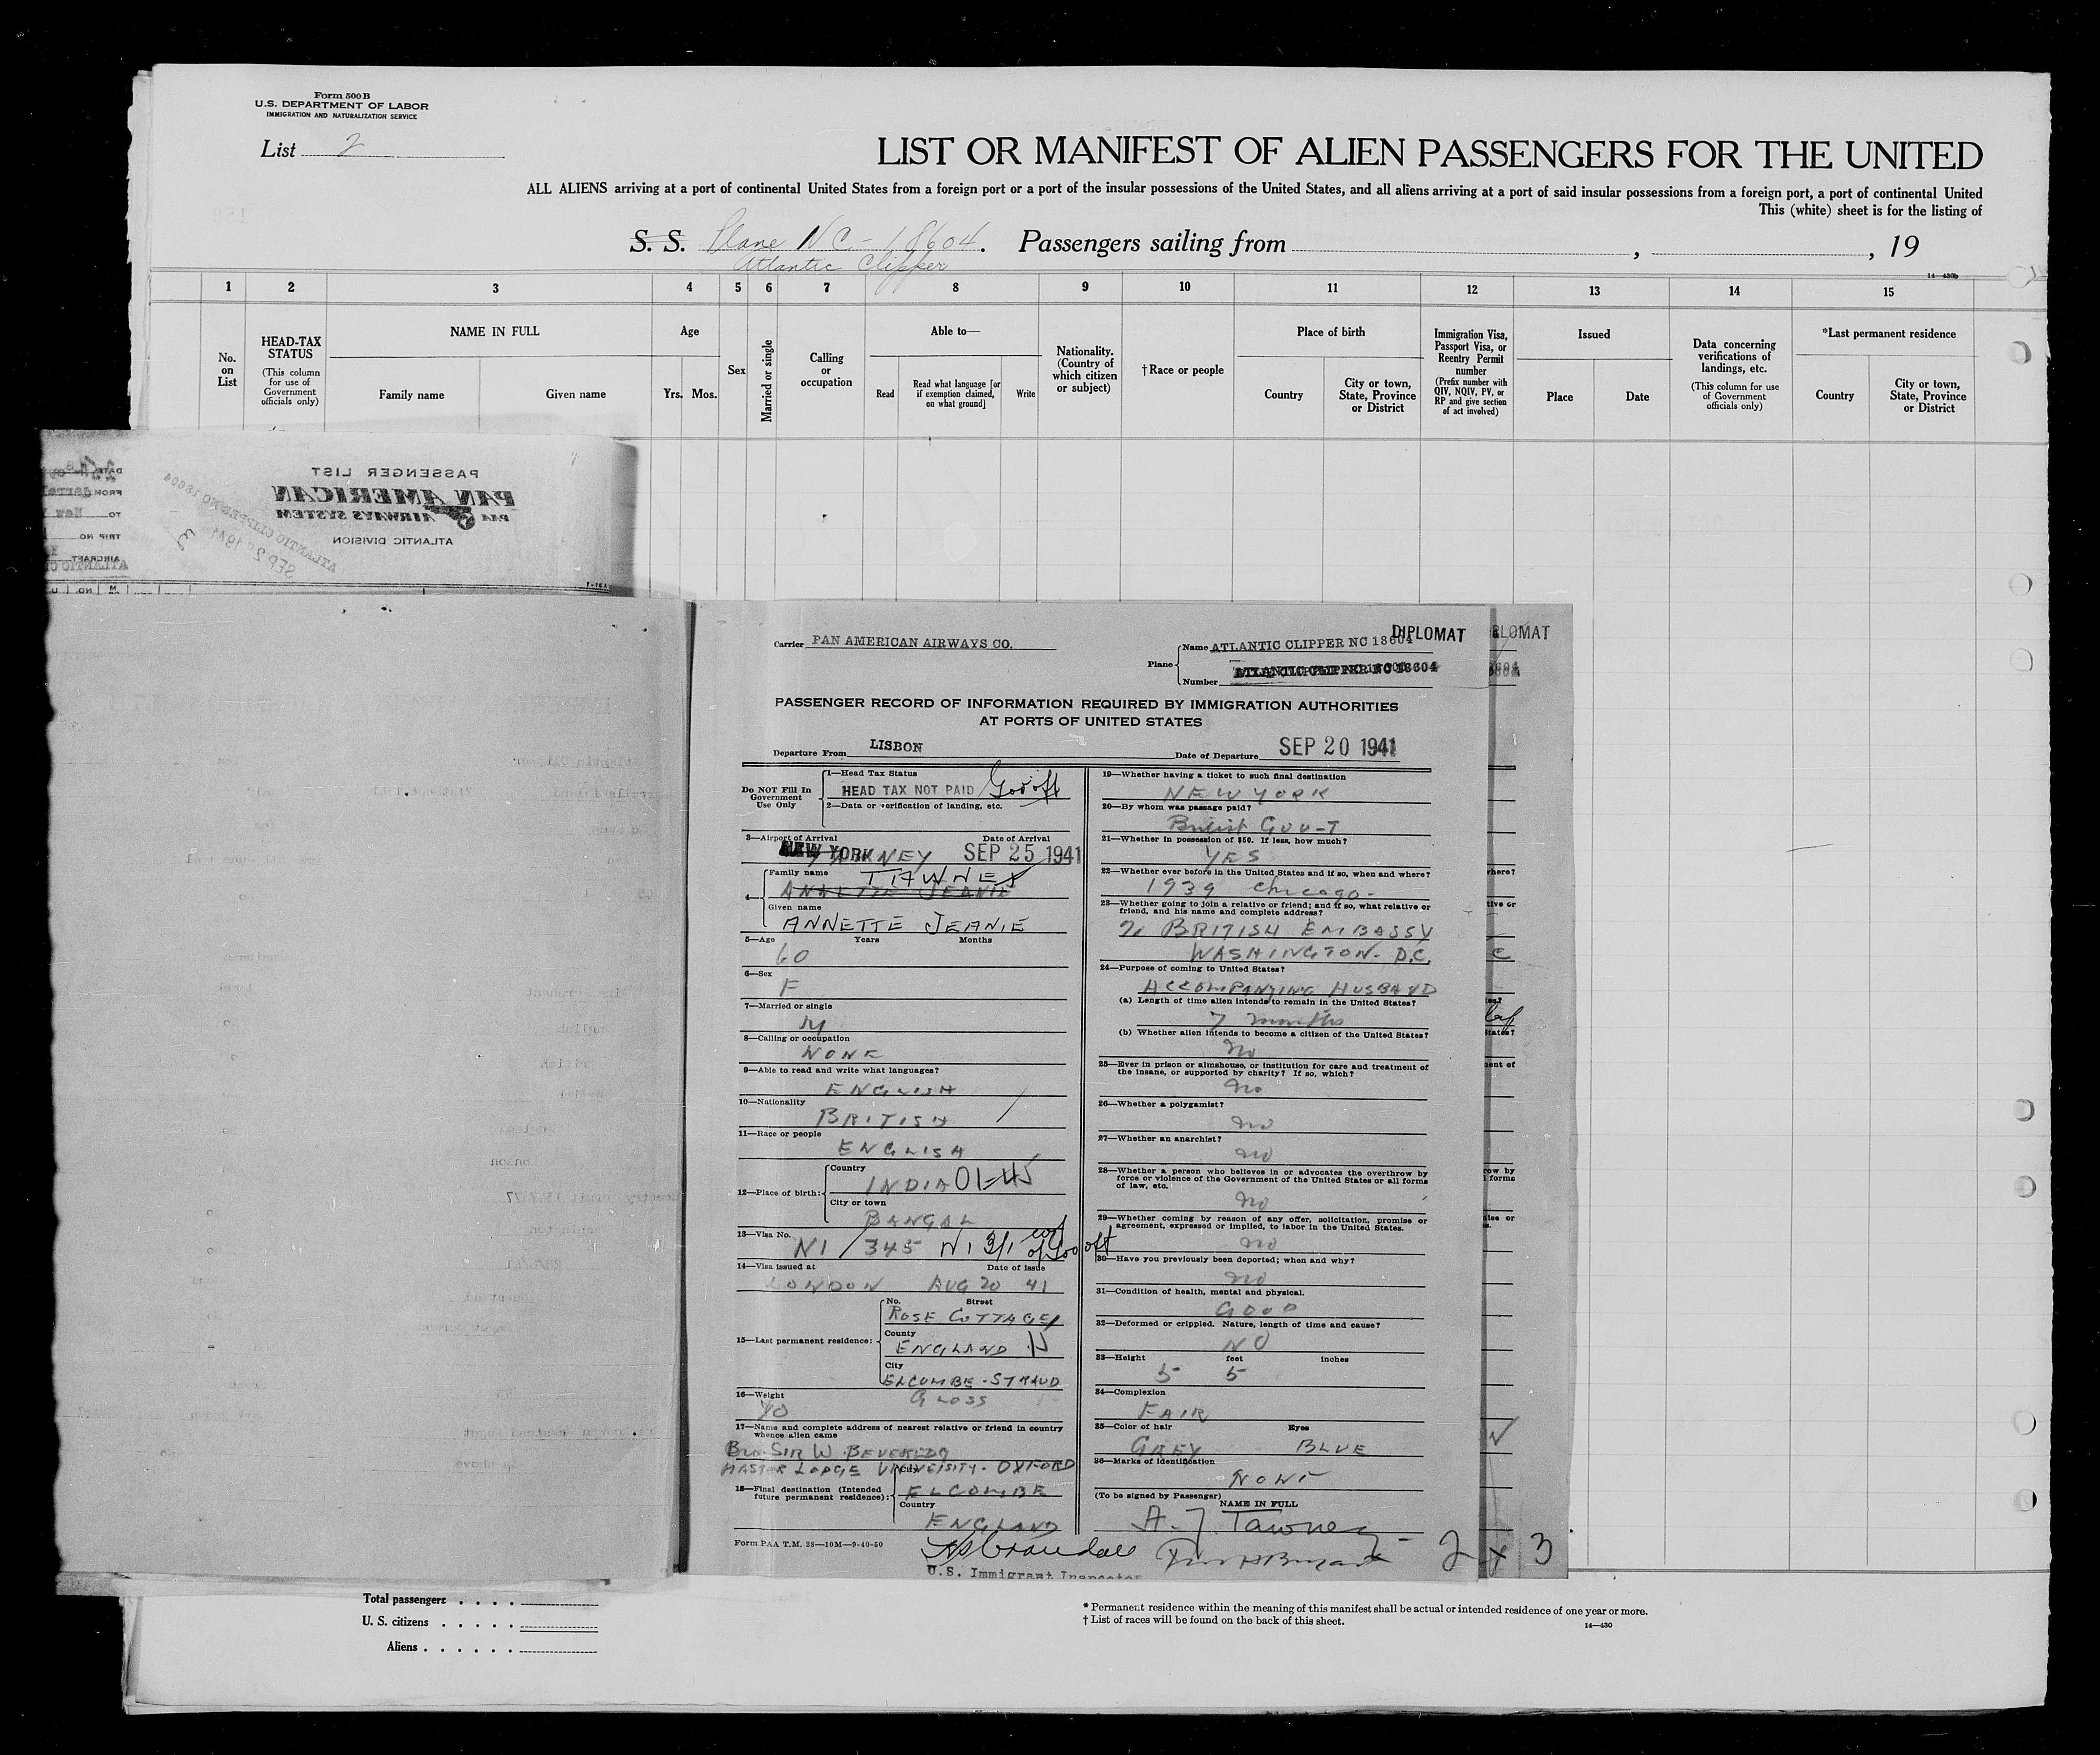 Form 500 B
U.S. DEPARTMENT OF LABOR
IMMIGRATION AND NATURALIZATION SERVICE
List 2
LIST OR MANIFEST OF ALIEN PASSENGERS FOR THE UNITED
ALL ALIENS arriving at a port of continental United States from a foreign port or a port of the insular possessions of the United States, and all aliens arriving at a port of said insular possessions from a foreign port, a port of continental United
This (white) sheet is for the listing of
S. S. Plane NC-18604. Passengers sailing from , , 19
Atlantic Clipper
14—430b
1 2 3 4 5 6 7 8 9 10 11 12 13 14 15
No. on List
HEAD-TAX STATUS
(This column for use of Government officials only)
NAME IN FULL
Family name
Given name
Age
Yrs. Mos.
Sex
Married or single
Calling or occupation
Able to—
Read
Read what language [or if exemption claimed, on what ground]
Write
Nationality. (Country of which citizen or subject)
†Race or people
Place of birth
Country
City or town, State, Province or District
Immigration Visa, Passport Visa, or Reentry Permit number
(Prefix number with QIV, NQIV, PV, or RP and give section of act involved)
Issued
Place
Date
Data concerning verifications of landings, etc.
(This column for use of Government officials only)
*Last permanent residence
Country
City or town, State, Province or District
PASSENGER LIST
PAN AMERICAN
PAA AIRWAYS SYSTEM
ATLANTIC DIVISION
ATLANTIC CLIPPER NC 18604
SEP 2 1941
3
DATE
FROM
TO New
TRIP NO.
AIRCRAFT
Carrier PAN AMERICAN AIRWAYS CO.
DIPLOMAT
Plane
Name ATLANTIC CLIPPER NC 18604
Number ATLANTIC CLIPPER NC 18604
PASSENGER RECORD OF INFORMATION REQUIRED BY IMMIGRATION AUTHORITIES
AT PORTS OF UNITED STATES
Departure From LISBON Date of Departure SEP 20 1941
Do NOT Fill In Government Use Only
1—Head Tax Status
HEAD TAX NOT PAID Gov off
2—Data or verification of landing, etc.
3—Airport of Arrival Date of Arrival
NEW YORK SEP 25 1941
4—
Family name TAWNEY
ANNETTE JEANIE
Given name
ANNETTE JEANIE
5—Age Years Months
60
6—Sex
F
7—Married or single
M
8—Calling or occupation
NONE
9—Able to read and write what languages?
ENGLISH
10—Nationality
BRITISH
11—Race or people
ENGLISH
12—Place of birth:
Country
INDIA 01-45
City or town
BANGAL
13—Visa No.
NI / 345 N1 3/1 Gov off
14—Visa issued at Date of issue
LONDON AUG 20 41
15—Last permanent residence:
No. Street
ROSE COTTAGE
County
ENGLAND
City
ELCOMBE - STRAUD
GLOSS
16—Weight
17—Name and complete address of nearest relative or friend in country whence alien came
Bro. SIR W. BEVEREDG
MASTER LODGE UNIVERSITY. OXFORD
18—Final destination (Intended future permanent residence):
City
ELCOMBE
Country
ENGLAND
Form PAA T.M. 28—10M—9-40-50
U.S. Immigrant Inspector
19—Whether having a ticket to such final destination
NEW YORK
20—By whom was passage paid?
British GOV-T
21—Whether in possession of $50. If less, how much?
YES
22—Whether ever before in the United States and if so, when and where?
1939 Chicago-
23—Whether going to join a relative or friend; and if so, what relative or friend, and his name and complete address?
BRITISH EMBASSY
WASHINGTON. D.C.
24—Purpose of coming to United States?
ACCOMPANYING HUSBAND
(a) Length of time alien intends to remain in the United States?
7 months
(b) Whether alien intends to become a citizen of the United States?
No
25—Ever in prison or almshouse, or institution for care and treatment of the insane, or supported by charity? If so, which?
No
26—Whether a polygamist?
No
27—Whether an anarchist?
No
28—Whether a person who believes in or advocates the overthrow by force or violence of the Government of the United States or all forms of law, etc.
No
29—Whether coming by reason of any offer, solicitation, promise or agreement, expressed or implied, to labor in the United States.
No
30—Have you previously been deported; when and why?
No
31—Condition of health, mental and physical.
GOOD
32—Deformed or crippled. Nature, length of time and cause?
NO
33—Height feet inches
5 5
34—Complexion
FAIR
35—Color of hair Eyes
GREY BLUE
36—Marks of identification
NONE
(To be signed by Passenger)
NAME IN FULL
A. J. Tawney
2 x 3
Total passengers
U. S. citizens
Aliens
* Permanent residence within the meaning of this manifest shall be actual or intended residence of one year or more.
† List of races will be found on the back of this sheet.
14—430